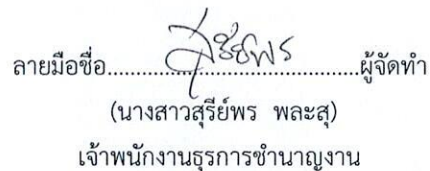 ลายมือชื่อ......สุรีย์พร......ผู้จัดทำ
(นางสาวสุรีย์พร พละสุ)
เจ้าพนักงานธุรการชำนาญงาน